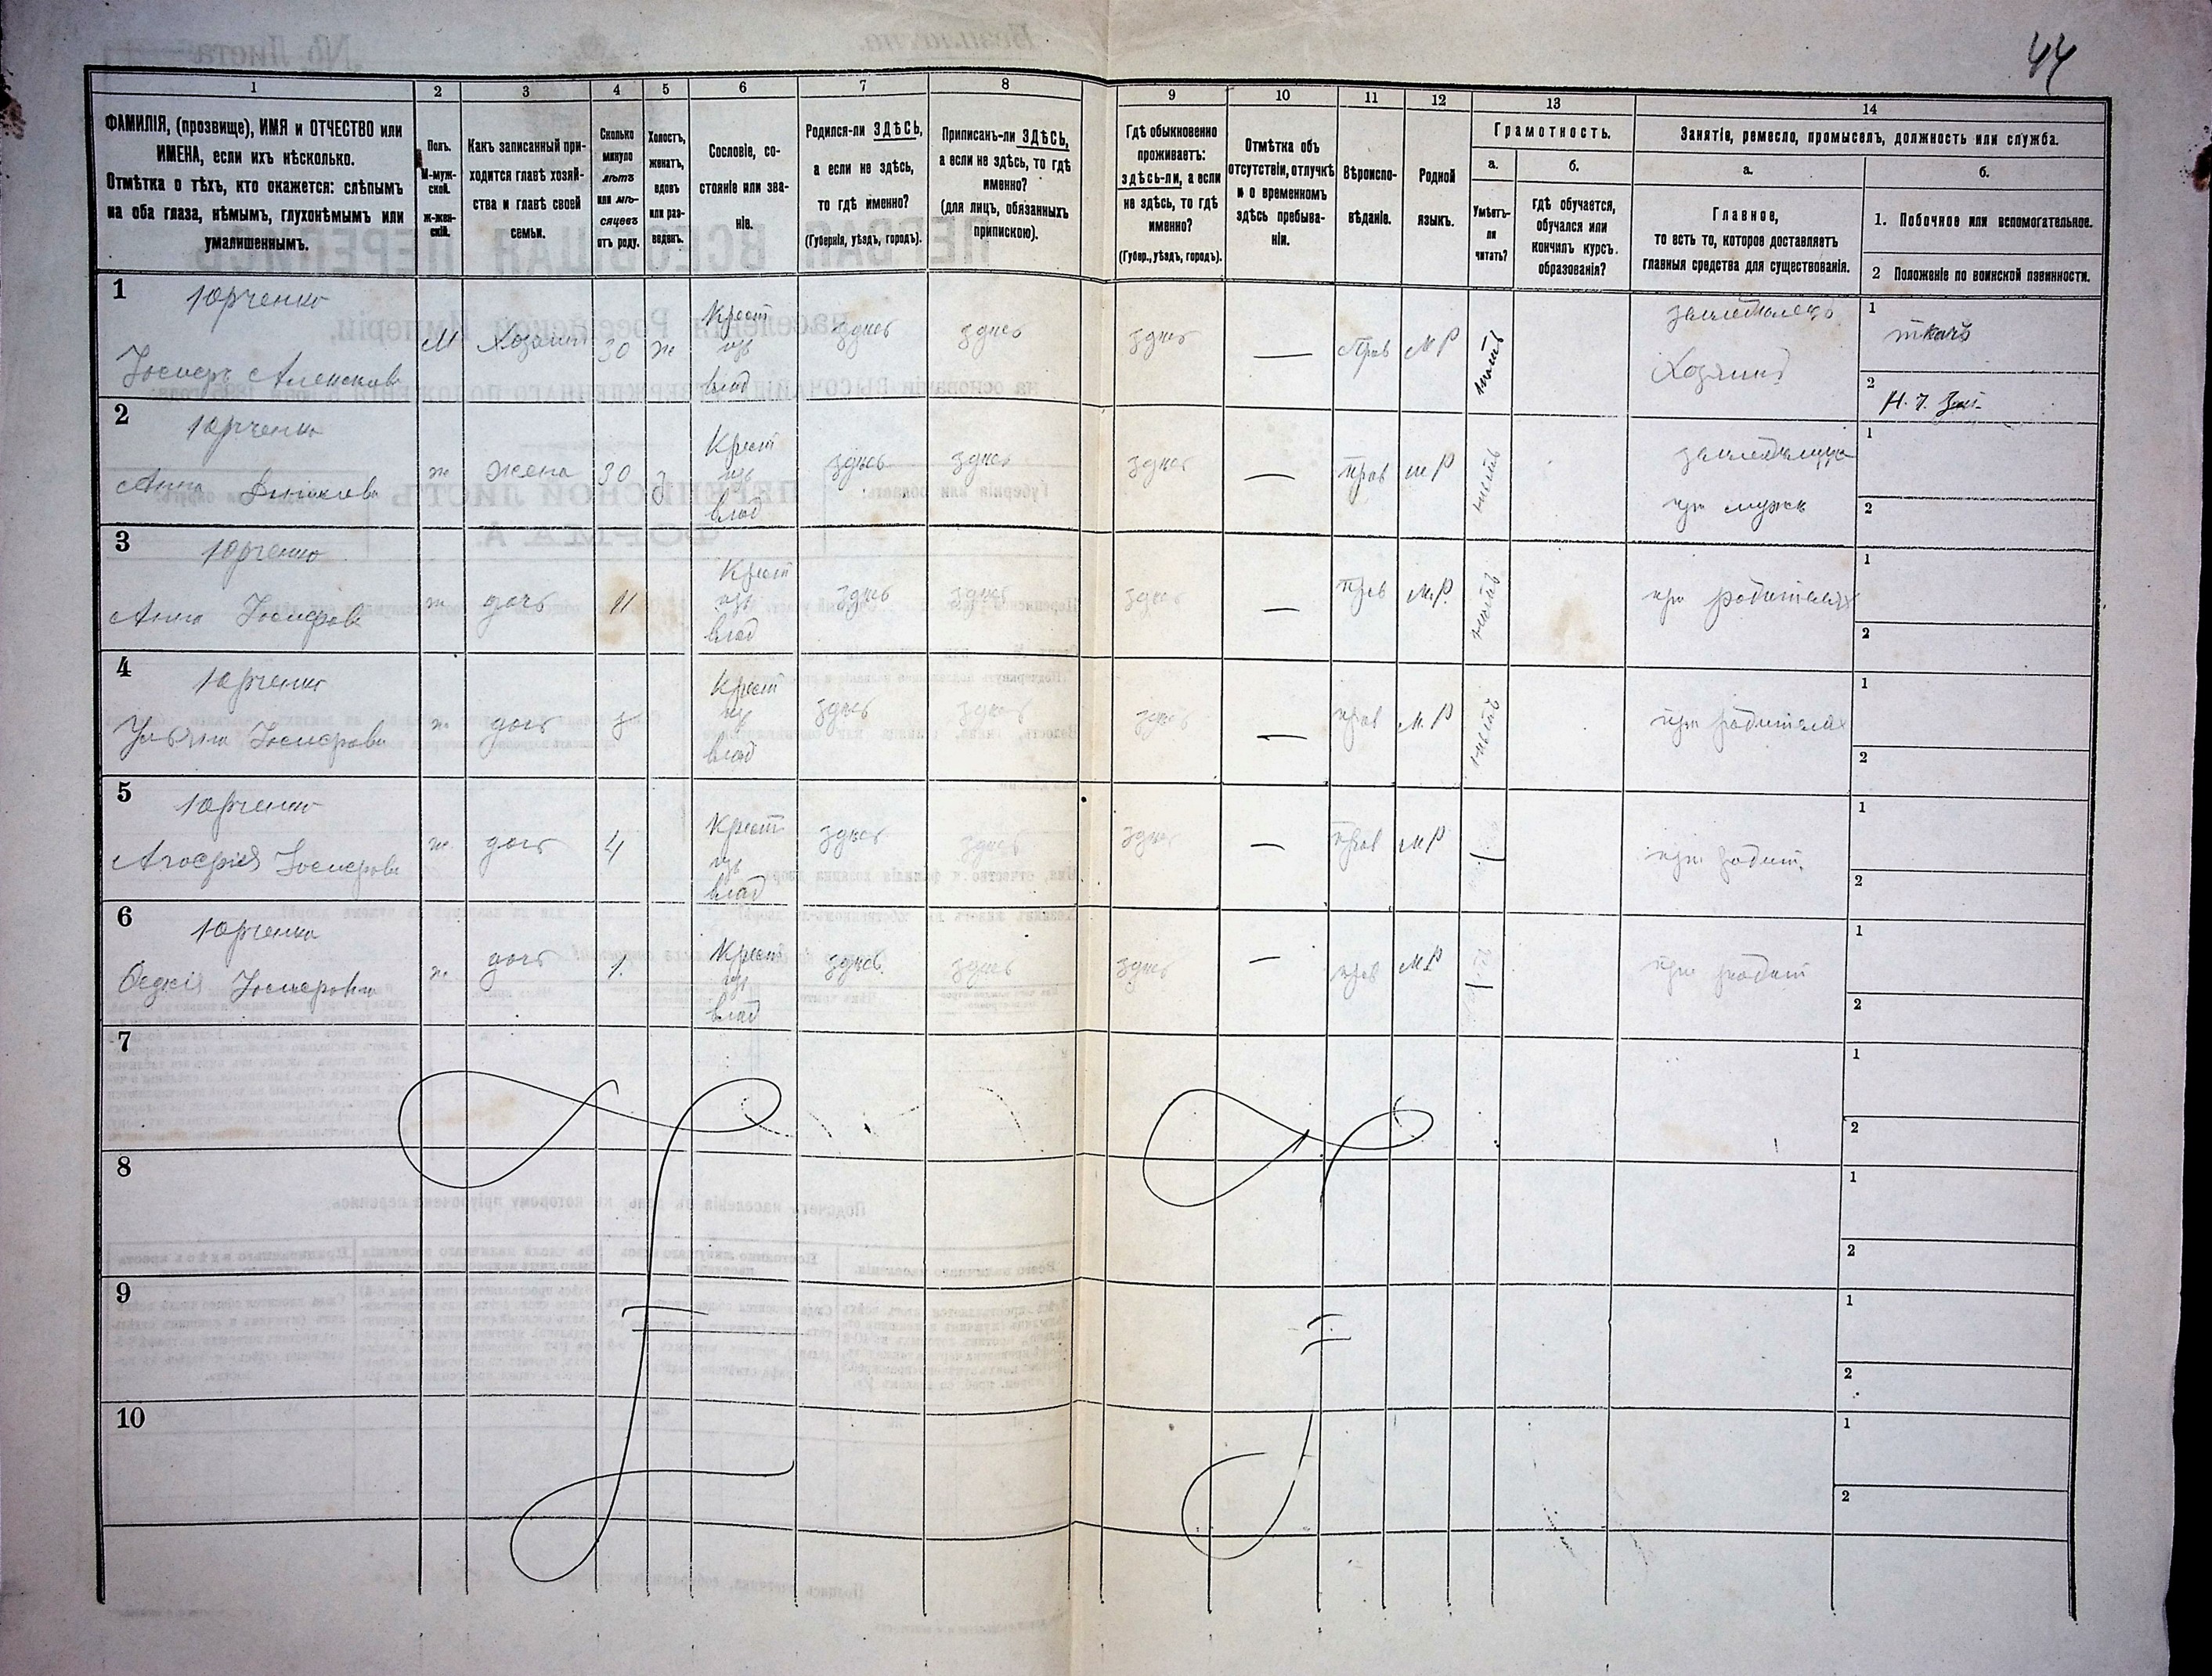 44
1
2
3
4
5
6
7
8
9
10
11
12
13
14
ФАМИЛІЯ, (прозвище), ИМЯ и ОТЧЕСТВО или
ИМЕНА, если ихъ нѣсколько.
Отмѣтка о тѣхъ, кто окажется: слѣпымъ
на оба глаза, нѣмымъ, глухонѣмымъ или
умалишеннымъ.
Полъ.
М-муж-
ской.
ж-жен-
скій.
Какъ записанный при-
ходится главѣ хозяй-
ства и главѣ своей
семьи.
Сколько
минуло
лѣтъ
или мѣ-
сяцевъ
отъ роду.
Холостъ,
женатъ,
вдовъ
или раз-
веденъ.
Сословіе, со-
стояніе или зва-
ніе.
Родился-ли ЗДѢСЬ,
а если не здѣсь,
то гдѣ именно?
(Губернія, уѣздъ, городъ).
Приписанъ-ли ЗДѢСЬ,
а если не здѣсь, то гдѣ
именно?
(для лицъ, обязанныхъ
припискою).
Гдѣ обыкновенно
проживаетъ:
здѣсь-ли, а если
не здѣсь, то гдѣ
именно?
(Губер., уѣздъ, городъ).
Отмѣтка объ
отсутствіи, отлучкѣ
и о временномъ
здѣсь пребыва-
ніи.
Вѣроиспо-
вѣданіе.
Родной
языкъ.
Грамотность.
а.
б.
Умѣетъ-
ли
читать?
гдѣ обучается,
обучался или
кончилъ курсъ
образованія?
Занятіе, ремесло, промыселъ, должность или служба.
а.
б.
Главное,
то есть то, которое доставляетъ
главныя средства для существованія.
1. Побочное или вспомогательное.
2 Положеніе по воинской повинности.
1
Юрченко
М
Хозяинъ
30
ж
Крест
изъ
влад
здѣсь
здѣсь
здѣсь
—
Прав
МР
нѣтъ
Хозяинъ
1
ткачъ
2
2
Юрченко
Анна
ж
жена
30
з
Крест
изъ
влад
здѣсь
здѣсь
здѣсь
—
прав
МР
нѣтъ
при мужѣ
1
2
3
Юрченко
Анна Іосифова
ж
дочь
11
Крест
изъ
влад
здѣсь
здѣсь
здѣсь
—
прав
М.Р.
нѣтъ
при родителяхъ
1
2
4
Юрченко
Ульяна Іосифова
ж
дочь
Крест
изъ
влад
здѣсь
здѣсь
здѣсь
—
прав
М.Р
нѣтъ
при родителях
1
2
5
Юрченко
Агафія Іосифова
ж
дочь
4
Крест
изъ
влад
здѣсь
здѣсь
здѣсь
—
прав
МР
при родит.
1
2
6
Юрченко
Іосифовна
ж
дочь
1
Крест
изъ
влад
здѣсь
здѣсь
здѣсь
—
прав
МР
при родит
1
2
7
1
2
8
1
2
9
1
2
10
1
2